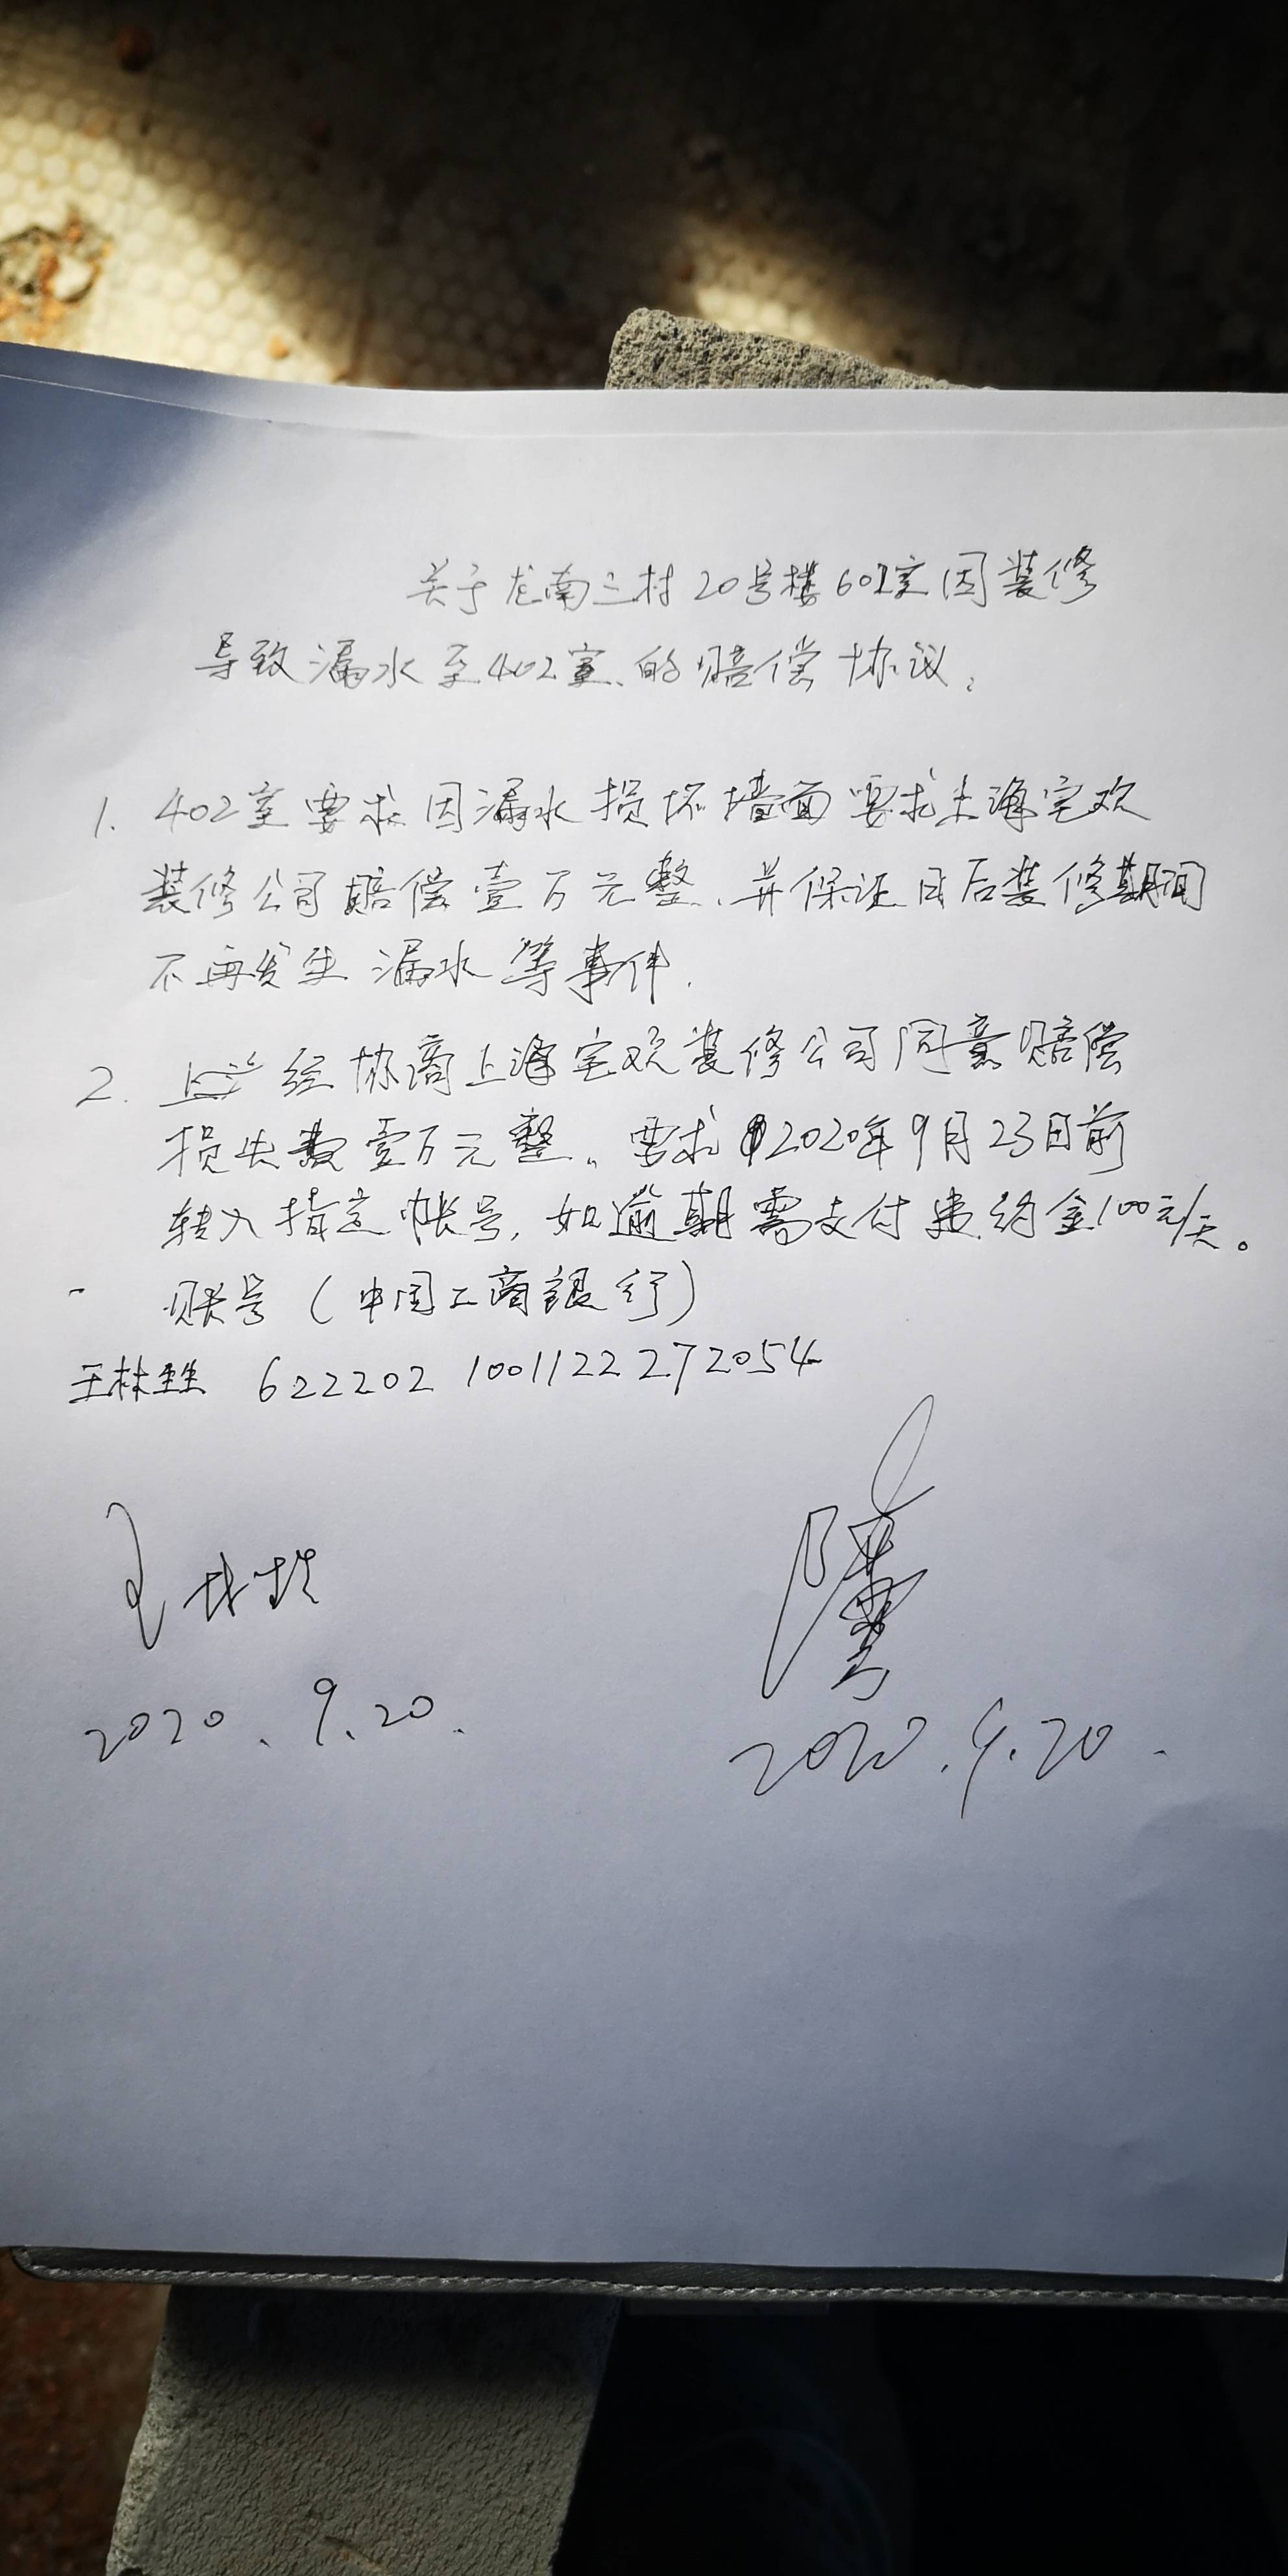 关于龙南三村20号楼602室因装修
导致漏水至402室、的赔偿协议;
1. 402室要求因漏水损坏墙面要求上海宅欢
装修公司赔偿壹万元整、并保证日后装修期间
不再发生漏水等事件.
2. 经协商上海宅欢装修公司同意赔偿
损失费壹万元整。要求2020年9月23日前
转入指定帐号,如逾期需支付违约金100元/天。
账号(中国工商银行)
王林 622202 1001122272054
2020.9.20.
2020.9.20.